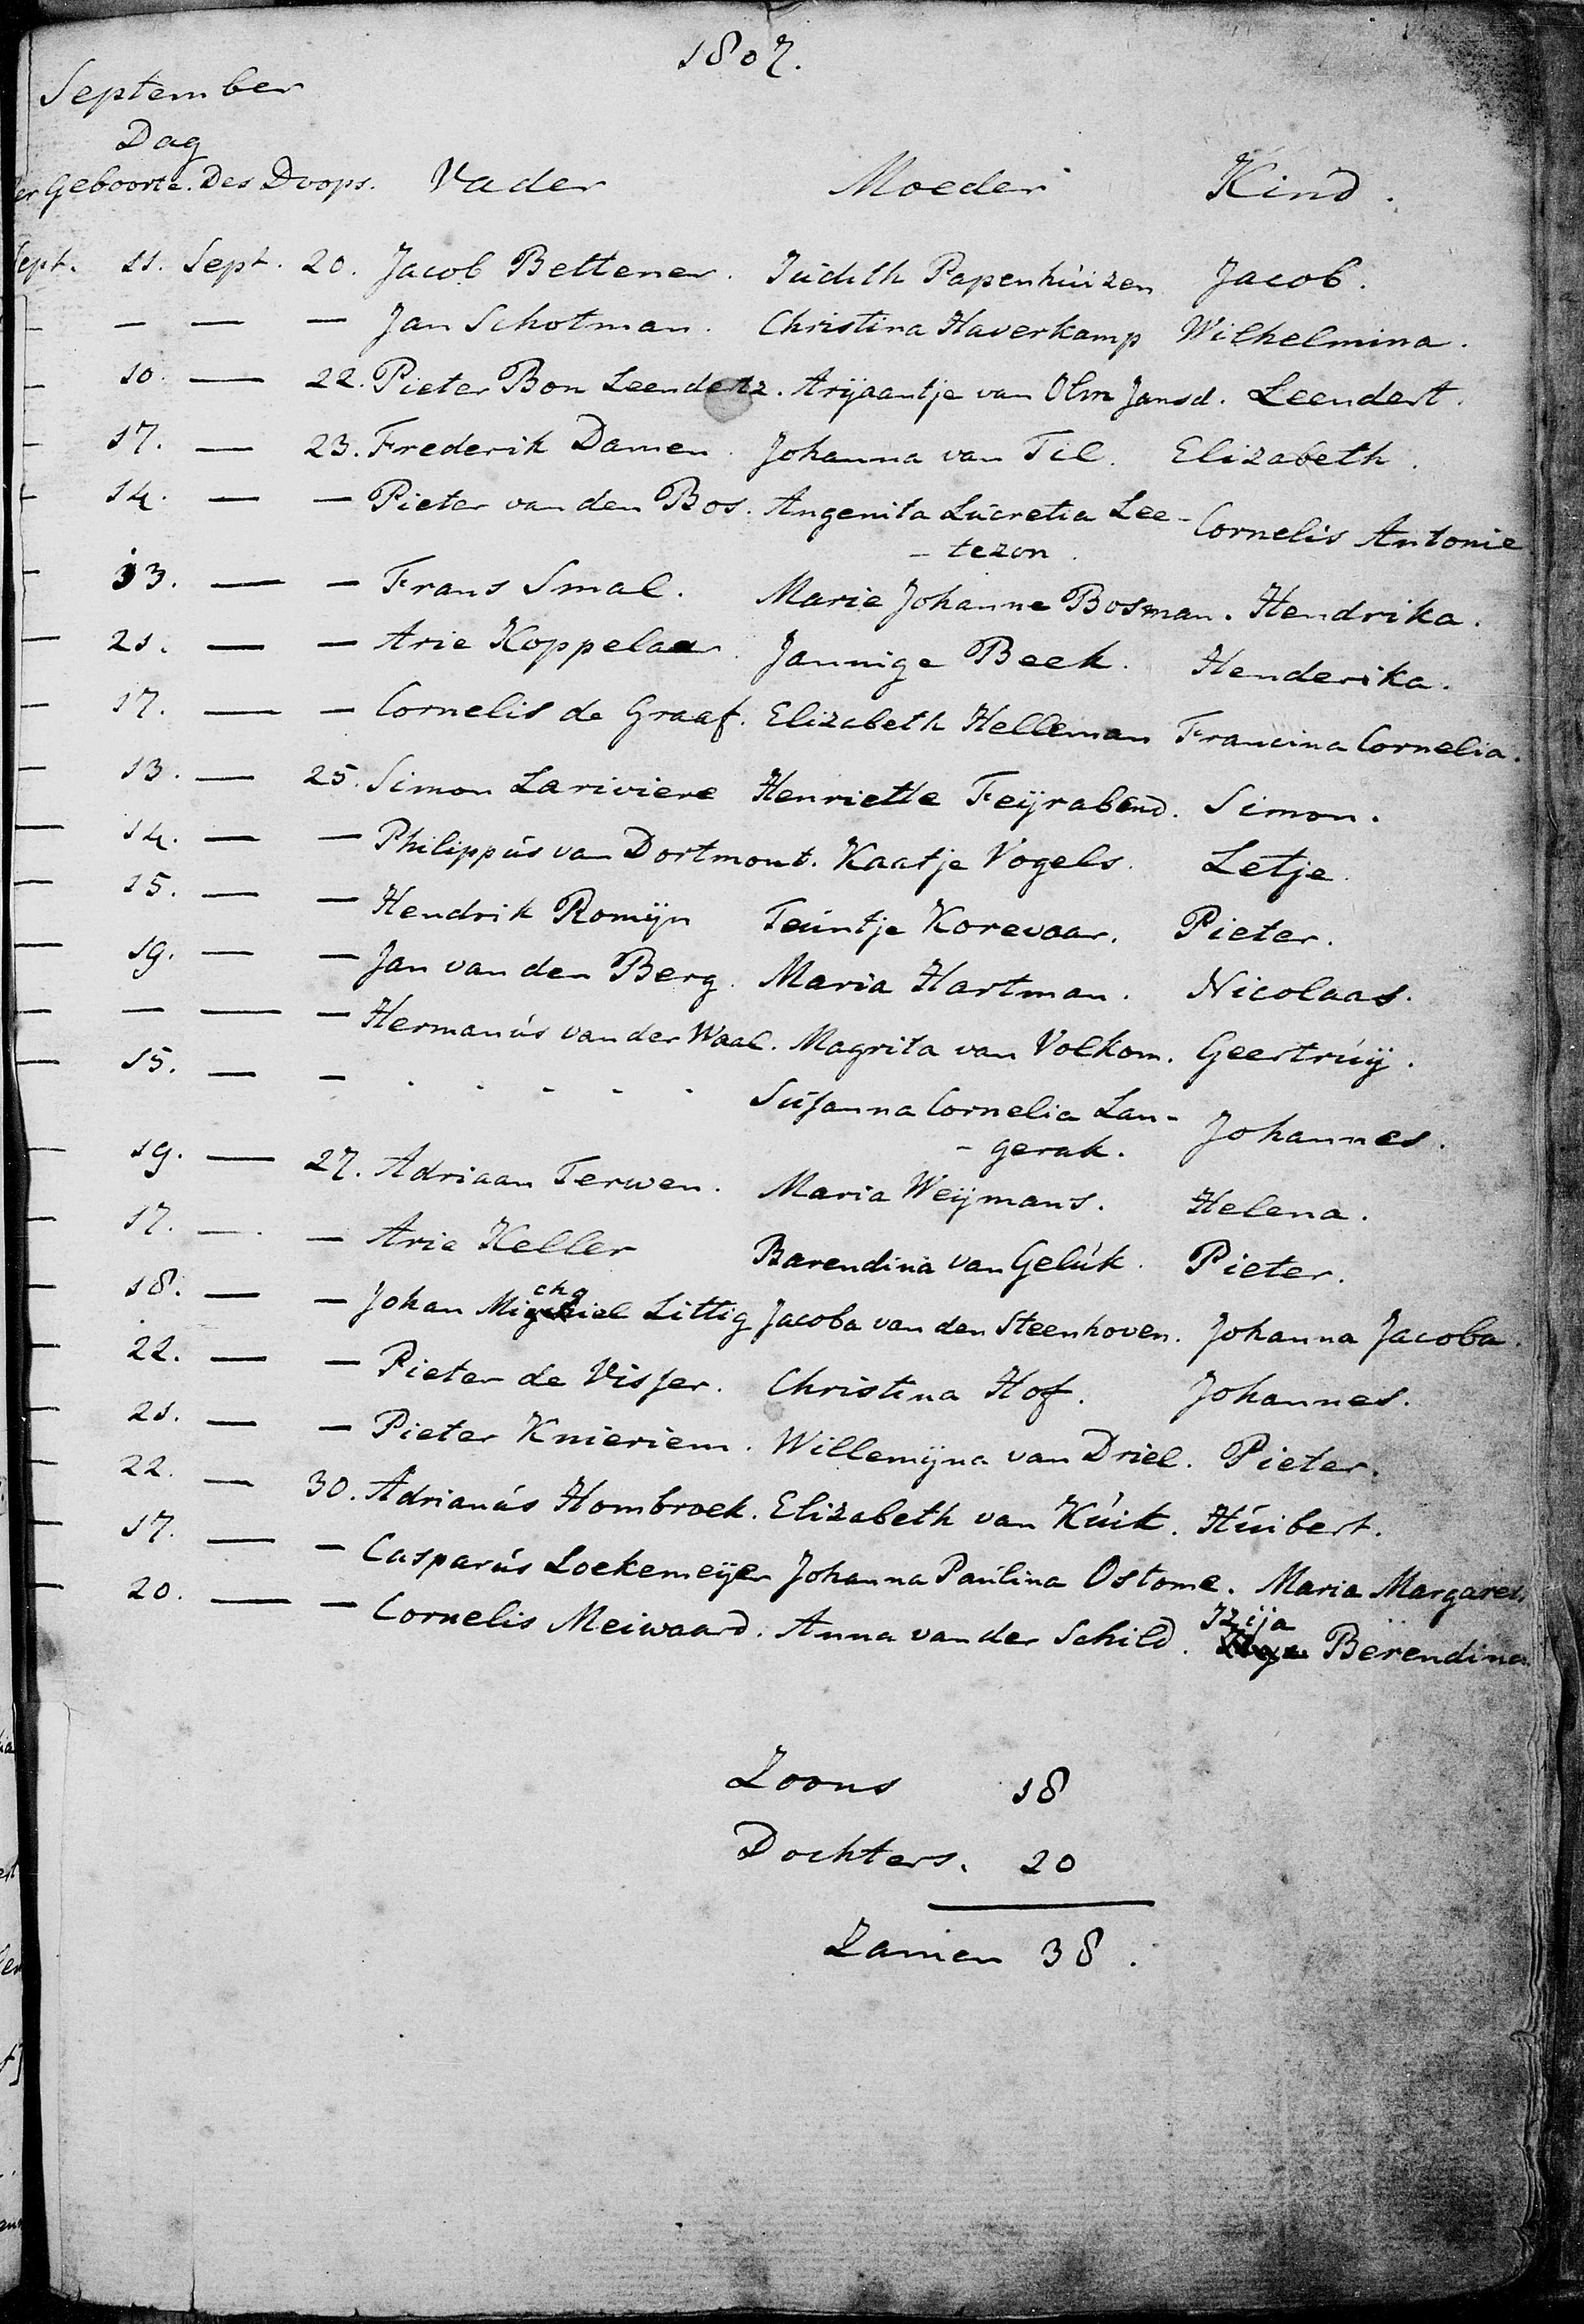 1807.
September
Dag
der Geboorte. Des Doops. Vader Moeder Kind.
Sept. 11. Sept. 20. Jacob Bettener. Judith Papenhuizen Jacob.
— — — — Jan Schotman. Christina Haverkamp Wilhelmina.
— 10. — 22. Pieter Bon Leendertz. Arijaantje van Olm Jansd. Leendert.
— 17. — 23. Frederik Damen. Johanna van Til. Elizabeth.
— 14. — — Pieter van den Bos. Angenita Lucretia Lee-
- tezon. Cornelis Antonie
— 13. — — Frans Smal. Marie Johanne Bosman. Hendrika.
— 21. — — Arie Koppelaar. Jannige Beek. Henderika.
— 17. — — Cornelis de Graaf. Elizabeth Helleman Francina Cornelia.
— 13. — 25. Simon Lariviere Henriette Feijrabend. Simon.
— 14. — — Philippus van Dortmont. Kaatje Vogels. Letje.
— 15. — — Hendrik Romijn Teuntje Korevaar. Pieter.
— 19. — — Jan van den Berg. Maria Hartman. Nicolaas.
— — — — Hermanus van der Waal. Magrita van Volkom. Geertruij.
— 15. — — - - - - - Susanna Cornelia Lan-
- gerak. Johannes.
— 19. — 27. Adriaan Terwen. Maria Weijmans. Helena.
— 17. — — Arie Keller Barendina van Geluk. Pieter.
— 18. — — Johan Michaiel Littig Jacoba van den Steenhoven. Johanna Jacoba.
— 22. — — Pieter de Visser. Christina Hof. Johannes.
— 21. — — Pieter Knieriem. Willemijna van Driel. Pieter.
— 22. — 30. Adrianus Hombroek. Elizabeth van Kuik. Huibert.
— 17. — — Casparus Loekemeijer Johanna Paulina Ostome. Maria Margaret.
— 20. — — Cornelis Meiwaard. Anna van der Schild. Izija Berendina.
Zoons 18
Dochters. 20
Zamen 38.